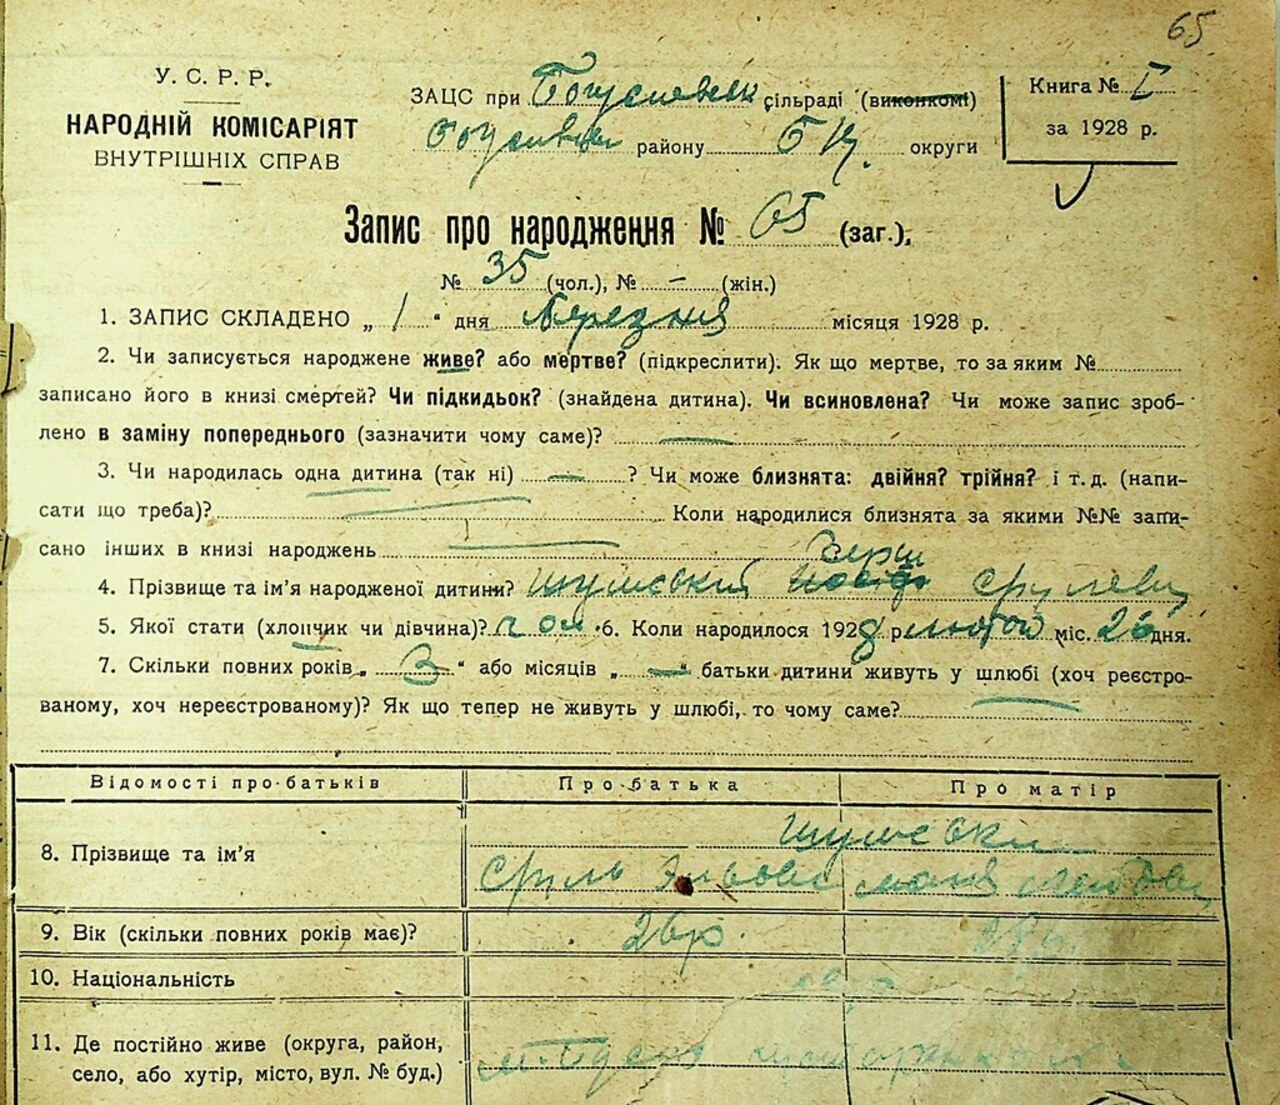 65
У. С. Р. Р.
НАРОДНІЙ КОМІСАРІЯТ
ВНУТРІШНІХ СПРАВ
ЗАЦС при Богуславськ сільраді (виконкомі)
району Б Ц. округи
Книга № I
за 1928 р.
Запис про народження № 65 (заг.),
№ 35 (чол.), № - (жін.)
1. ЗАПИС СКЛАДЕНО „ 1 " дня березня місяця 1928 р.
2. Чи записується народжене живе? або мертве? (підкреслити). Як що мертве, то за яким №
записано його в книзі смертей? Чи підкидьок? (знайдена дитина). Чи всиновлена? Чи може запис зроб-
лено в заміну попереднього (зазначити чому саме)? —
3. Чи народилась одна дитина (так ні) — ? Чи може близнята: двійня? трійня? і т. д. (напи-
сати що треба)? — Коли народилися близнята за якими №№ запи-
сано інших в книзі народжень —
Герш
4. Прізвище та ім'я народженої дитини? Шумський Йосиф Срулев
5. Якої стати (хлопчик чи дівчина)? чол. 6. Коли народилося 1928 р. лютой міс. 26 дня.
7. Скільки повних років „ 3 " або місяців „ — " батьки дитини живуть у шлюбі (хоч реєстро-
ваному, хоч нереєстрованому)? Як що тепер не живуть у шлюбі, то чому саме?
Відомості про батьків Про батька Про матір
Шумськи
8. Прізвище та ім'я Сруль
9. Вік (скільки повних років має)? 26 р.
10. Національність євр
11. Де постійно живе (округа, район,
село, або хутір, місто, вул. № буд.)